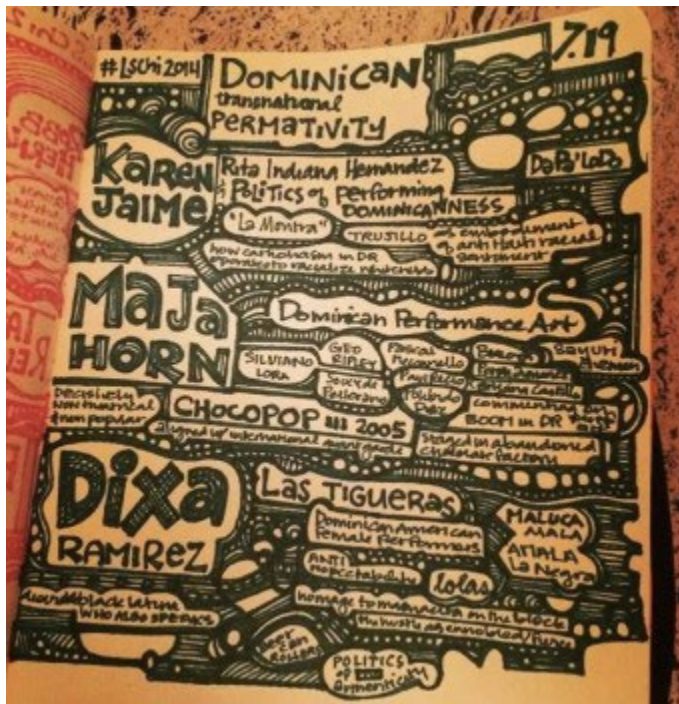 #LSChi 2014
DOMINICAN
transnational
PERMATIVITY
7.19
KAREN
JAIME
Rita Indiana Hernandez
& Politics of Performing
DOMINICANNESS
DaPa'LoDo
"La Montra"
TRUJILLO as embodiment
of anti Haiti racial
sentiment
how catholicism in DR
racialize
MAJA
HORN
Dominican Performance Art
SILVIANO
LORA
GEO
RIPLEY
Pascal
Meccariello
SAYURI
Guzman
Polibio
Diaz
decisively
Non theatrical
& non popular
CHOCOPOP 2005
aligned w/ international avant garde
commenting on
BOOM in DR
staged in abandoned
chocolate factory
DIXA
RAMIREZ
LAS TIGUERAS
Dominican American
female Performers
MALUCA
MALA
AMALA
La Negra
ANTI
respectability
lolas
homage to on the block
the hustle as
black latina
WHO ALSO SPEAKS
POLITICS
of
Authenticity